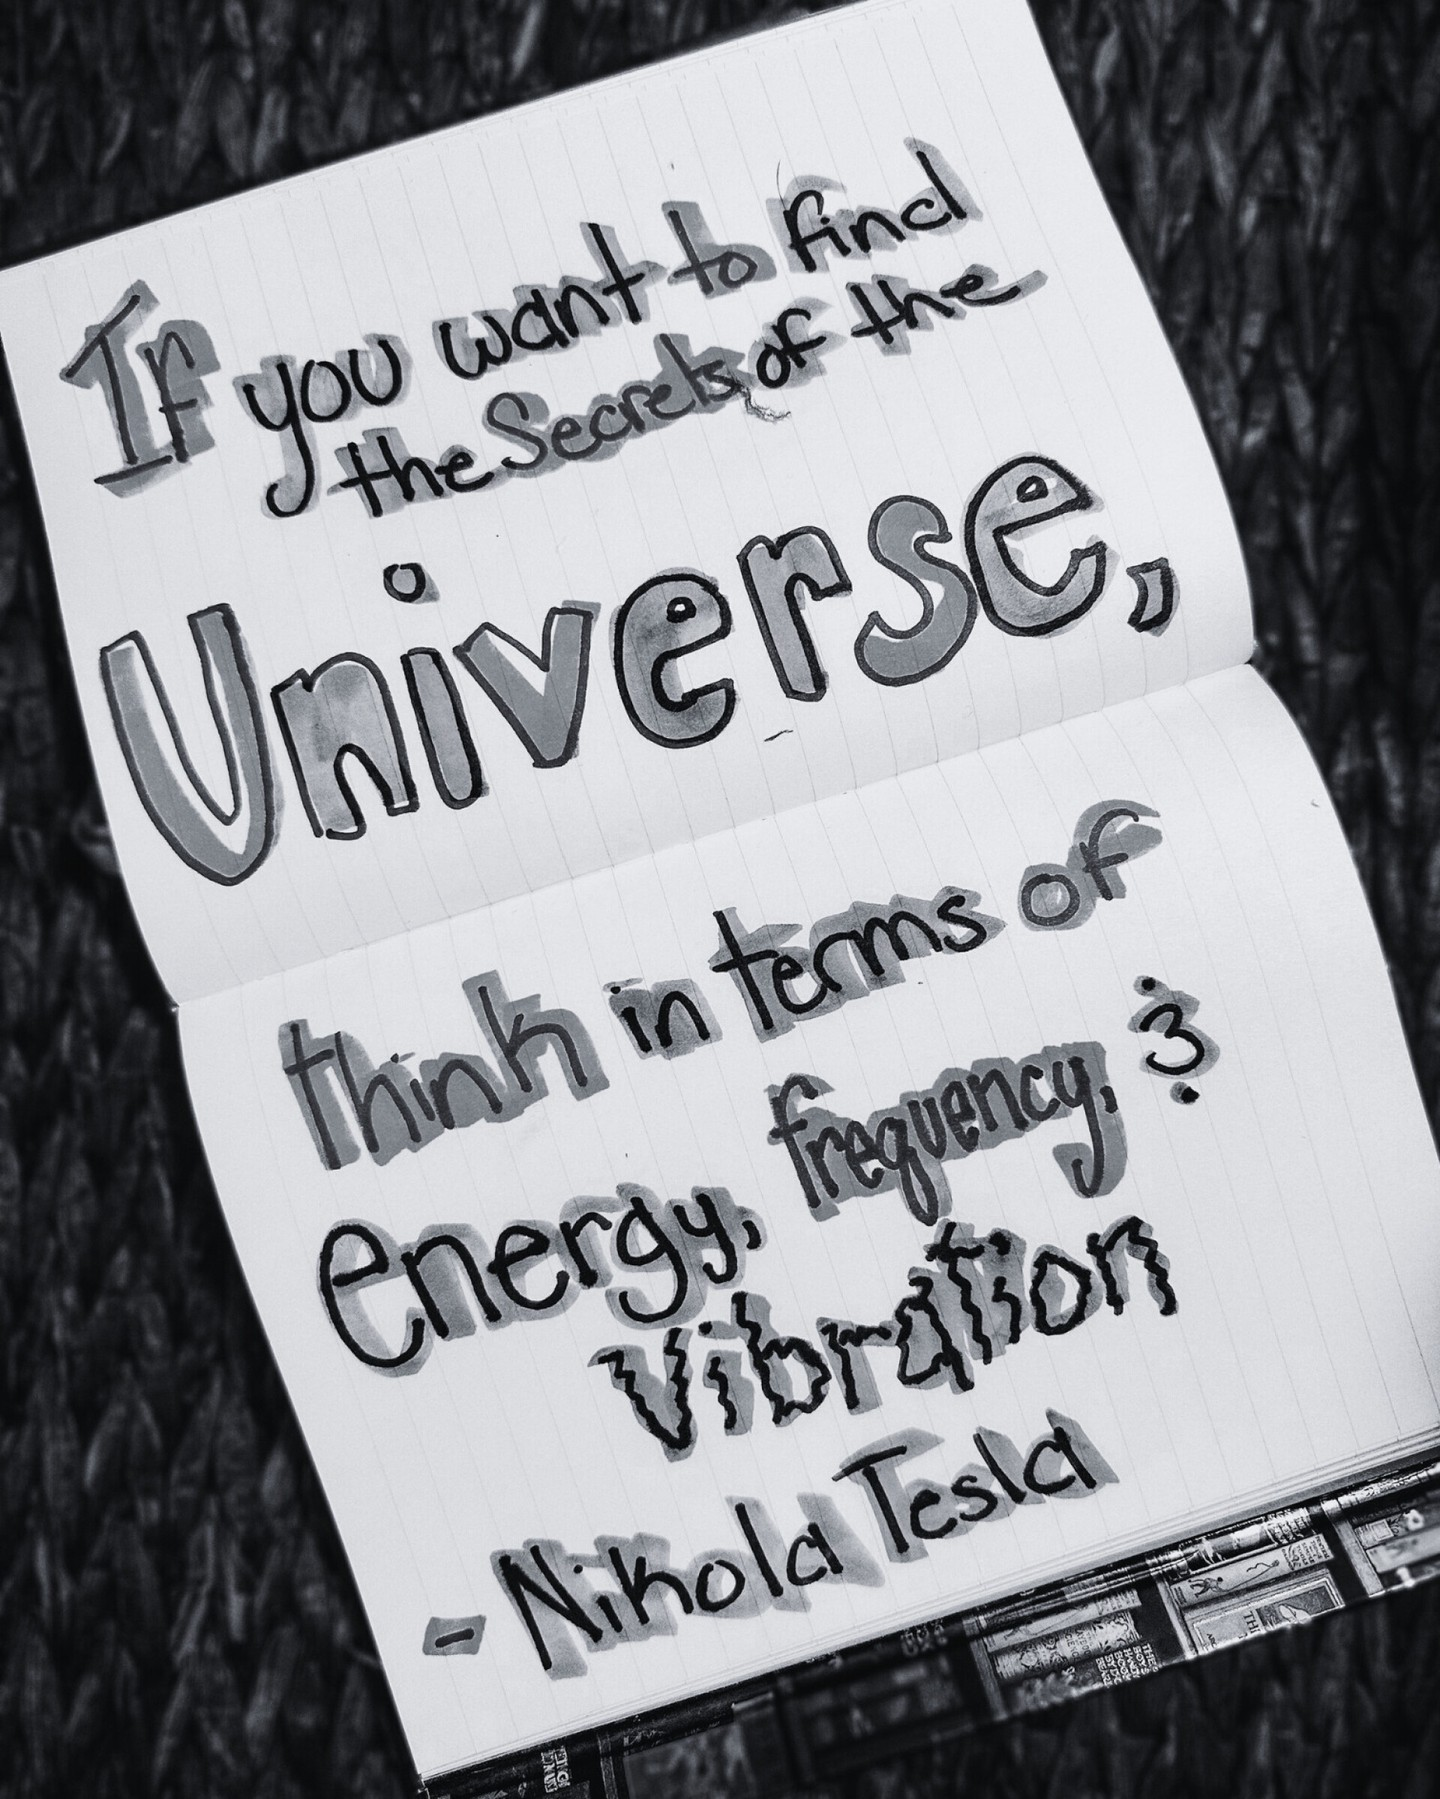 If you want to find
the Secrets of the
Universe,
think in terms of
energy, frequency, &
Vibration
- Nikola Tesla